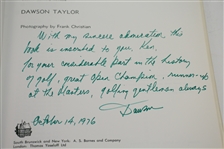 DAWSON TAYLOR
Photography by Frank Christian
With my sincere admiration this
book is inscribed to you, Ken,
for your considerable part in the history
of golf, great Open Champion, runner-up
at the Masters, golfing gentleman always
Dawson
October 14, 1976
South Brunswick and New York: A. S. Barnes and Company
London: Thomas Yoseloff Ltd